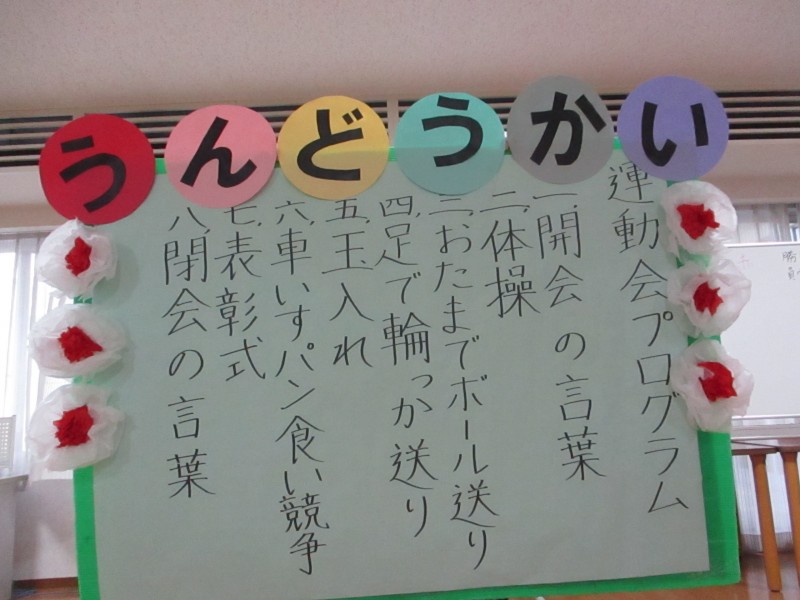 うんどうかい
運動会プログラム
一、開会の言葉
二、体操
三、おたまでボール送り
四、足で輪っか送り
五、玉入れ
六、車いすパン食い競争
七、表彰式
八、閉会の言葉